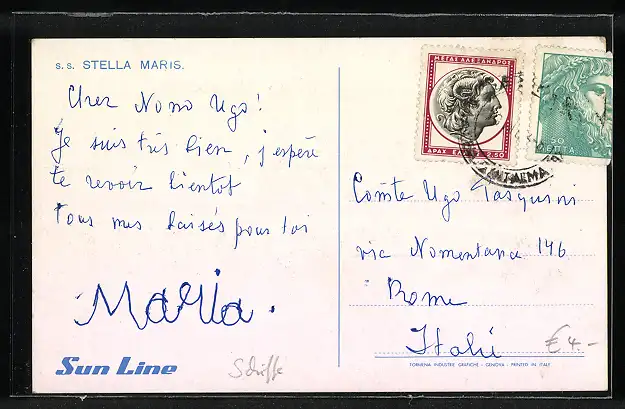 S.S. STELLA MARIS.
Cher Nono Ugo!
Je suis très bien, j'espère
te revoir bientôt
tous mes baisés pour toi
Maria.
Sun Line
Schiffe
ΜΕΓΑΣ ΑΛΕΞΑΝΔΡΟΣ
ΔΡΑΧ ΕΛΛΑΣ 2.50
50
ΛΕΠΤΑ
Comte Ugo
via Nomentana 146
Rome
Italie
€ 4.-
TORNENA INDUSTRIE GRAFICHE - GENOVA - PRINTED IN ITALY